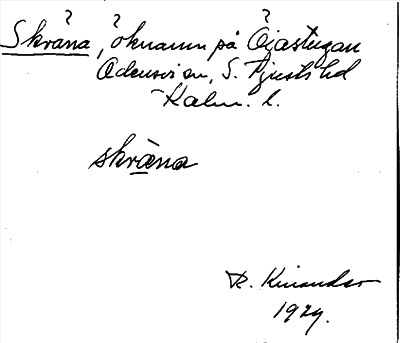 ? ? ?
Skräna, öknamn på Öjastugan
Odensvi sn, S. Tjusts hd
Kalm. l.
skräna
R. Kinander
1929.